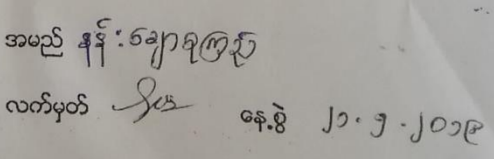 အမည် နန်းချောစုကြည်
လက်မှတ် နေ့စွဲ ၂၁.၅.၂၀၁၉